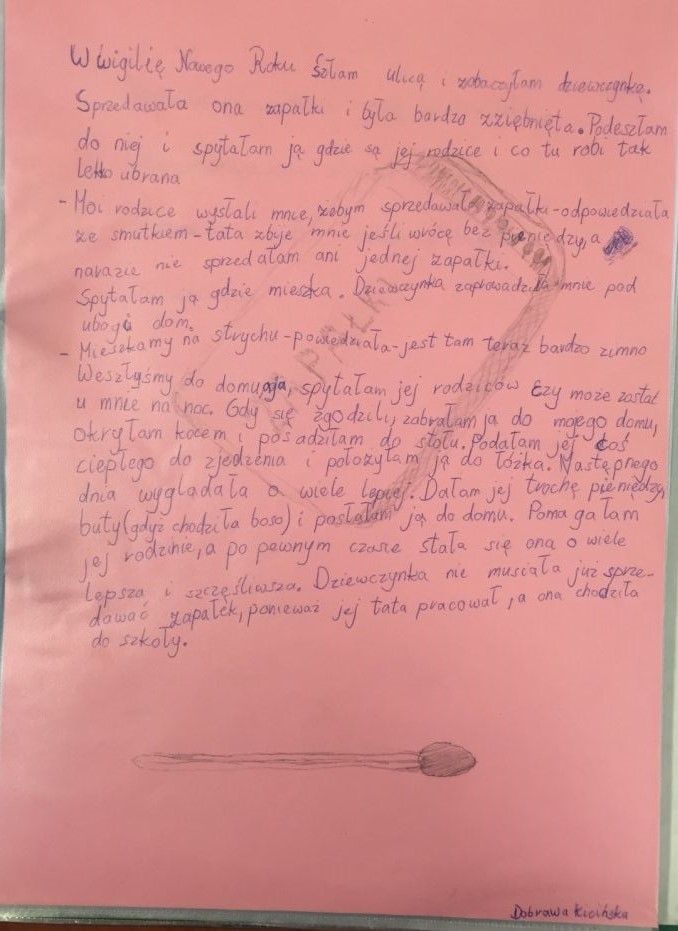 W wigilię Nowego Roku szłam ulicą i zobaczyłam dziewczynkę.
Sprzedawała ona zapałki i była bardzo zziębnięta. Podeszłam
do niej i spytałam ją gdzie są jej rodzice i co tu robi tak
lekko ubrana
- Moi rodzice wysłali mnie, żebym sprzedawała zapałki - odpowiedziała
ze smutkiem - tata zbije mnie jeśli wrócę bez pieniędzy, a
narazie nie sprzedałam ani jednej zapałki.
Spytałam ją gdzie mieszka. Dziewczynka zaprowadziła mnie pod
ubogi dom.
- Mieszkamy na strychu - powiedziała - jest tam teraz bardzo zimno
Weszłyśmy do domu, a ja spytałam jej rodziców czy może zostać
u mnie na noc. Gdy się zgodzili, zabrałam ją do mojego domu,
okryłam kocem i posadziłam do stołu. Podałam jej coś
ciepłego do zjedzenia i położyłam ją do łóżka. Następnego
dnia wyglądała o wiele lepiej. Dałam jej trochę pieniędzy,
buty (gdyż chodziła boso) i posłałam ją do domu. Pomagałam
jej rodzinie, a po pewnym czasie stała się ona o wiele
lepsza i szczęśliwsza. Dziewczynka nie musiała już sprze-
dawać zapałek, ponieważ jej tata pracował, a ona chodziła
do szkoły.
ZAPAŁKI
Dobrawa Kicińska